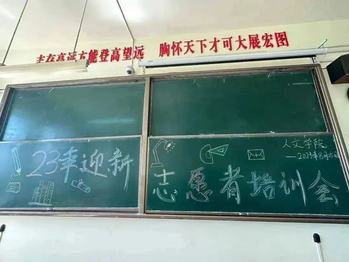 志存高远方能登高望远 胸怀天下才可大展宏图
23年迎新
志愿者培训会
人文学院